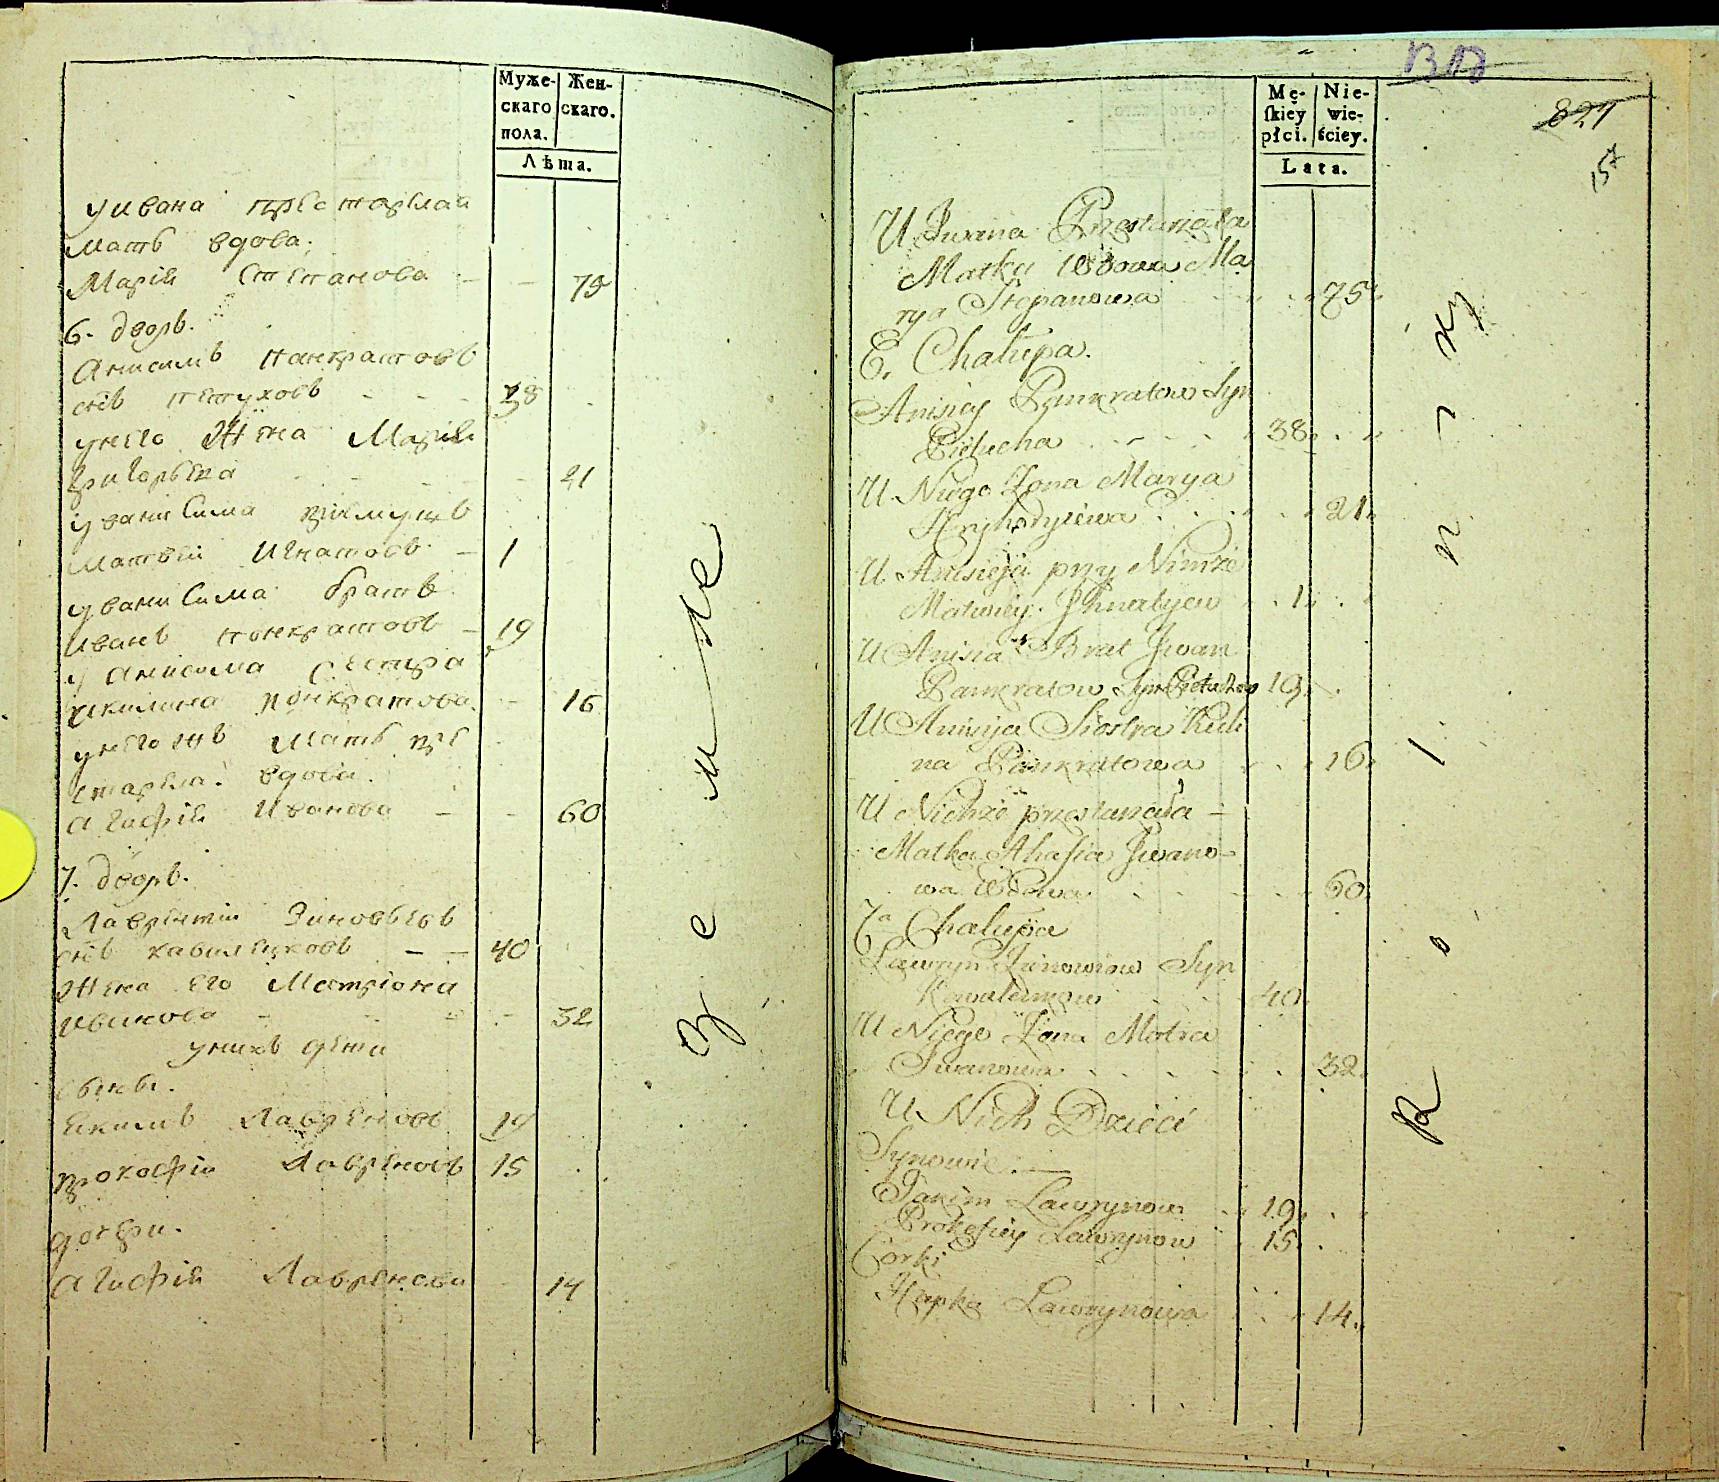 Муже-
скаго
пола.
Жен-
скаго.
Лѣта.
у Ивана престарелая
мать вдова.
Марія Степанова 75
6. дворъ.
Анисимъ Панкратовъ
снъ петуховъ 38
унего Жена Марія
григорьева 21
у Анисима приемышъ
Матвѣи Игнатовъ 1
у Анисима братъ
Иванъ понкратовъ 19
у Анисима Сестра
Акилина понкратова 16
унего жъ Мать пре
старела. вдова.
Агафія Иванова 60
7. дворъ.
Лаврентіи Зиновьевъ
снъ 40
Жена его Матріона
Иванова 32
унихъ дети
сыны.
Екимъ Лавреновъ 19
прокофіи Лавреновъ 15
дочери.
Агафія Лавренова 14
земже
Mę-
ſkiey
płci.
Nie-
wie-
ściey.
Lata.
821
157
U Jwana Przestarzała
Matka Wdowa Ma
rya Stepanowa 75
6. Chałupa.
Anisiey Pankratow Syn
Pietucha 38
U Niego Żona Marya
Hryhoryiewa 21
U Anisieja przy Nimże
Matwiey Jhnatyew 1
U Anisia Brat Jwan
Pankratow Syn Pietuchow 19
U Anisija Siostra Kuli
na Pankratowa 16
U Nichże przestarzała
Matka Ahafia Jwano-
wa Wdowa 60
7a Chałupa
Ławryn Zinowiow Syn
40
U Niego Żona Motra
Jwanowa 32
U Nich Dzieci
Synowie.
Jakim Ławrynow 19
Prokofiey Ławrynow 15
Corki
Hapka Ławrynowa 14